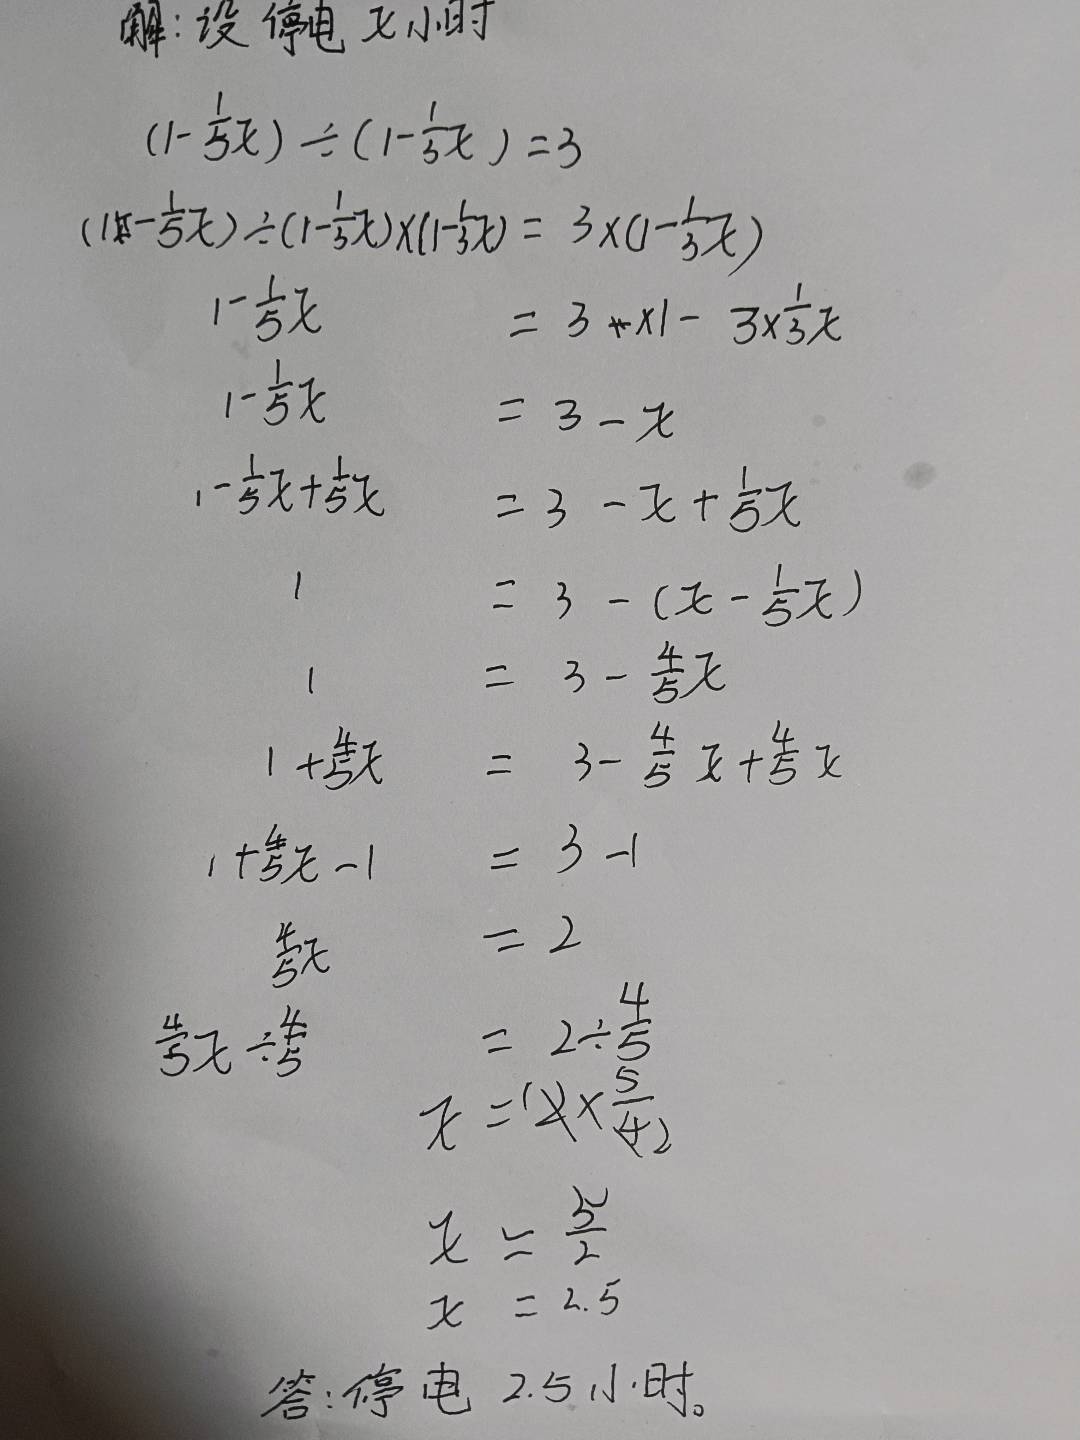 解:设停电x小时
(1-1/5x)÷(1-1/3x)=3
(1-1/5x)÷(1-1/3x)×(1-1/3x)=3×(1-1/3x)
1-1/5x=3×1-3×1/3x
1-1/5x=3-x
1-1/5x+1/5x=3-x+1/5x
1=3-(x-1/5x)
1=3-4/5x
1+4/5x=3-4/5x+4/5x
1+4/5x-1=3-1
4/5x=2
4/5x÷4/5=2÷4/5
x=2×5/4
x=5/2
x=2.5
答:停电2.5小时。